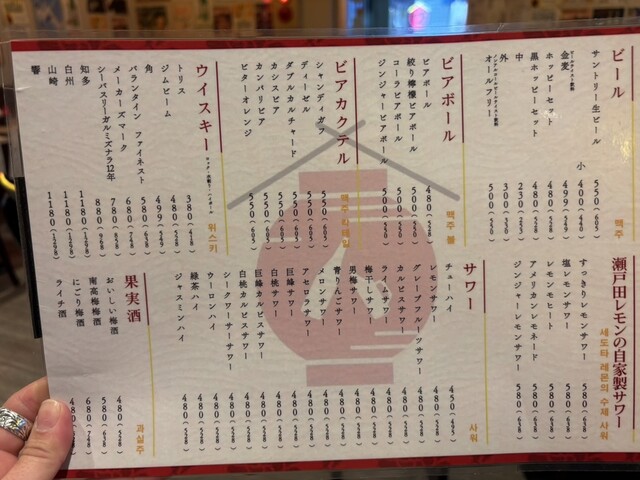 ビール
맥주
サントリー生ビール 550(605)
小 400(440)
金麦 499(549)
ホッピーセット 480(528)
黒ホッピーセット 480(528)
中 230(253)
外 300(330)
オールフリー 500(550)
ビアボール
맥주 볼
ビアボール 480(528)
絞り檸檬ビアボール 500(550)
コーラビアボール 500(550)
ジンジャービアボール 500(550)
ビアカクテル
맥주 칵테일
シャンディガフ 550(605)
ディーゼル 550(605)
ダブルカルチャード 550(605)
カシスビア 550(605)
カンパリビア 550(605)
ビターオレンジ 550(605)
ウイスキー
위스키
トリス 380(418)
ジムビーム 480(528)
角 499(549)
バランタイン ファイネスト 580(638)
メーカーズ マーク 680(748)
シーバスリーガルミズナラ12年 780(858)
知多 880(968)
白州 1180(1298)
山崎 1180(1298)
響 1180(1298)
瀬戸田レモンの自家製サワー
세토타 레몬의 수제 사워
すっきりレモンサワー 580(638)
塩レモンサワー 580(638)
レモンモヒート 580(638)
アメリカンレモネード 580(638)
ジンジャーレモンサワー 580(638)
サワー
사워
チューハイ 450(495)
レモンサワー 480(528)
グレープフルーツサワー 480(528)
カルピスサワー 480(528)
ライムサワー 480(528)
梅干しサワー 480(528)
男梅サワー 480(528)
青りんごサワー 480(528)
メロンサワー 480(528)
アセロラサワー 480(528)
巨峰サワー 480(528)
白桃サワー 480(528)
巨峰カルピスサワー 480(528)
白桃カルピスサワー 480(528)
シークワーサーサワー 480(528)
ウーロンハイ 480(528)
緑茶ハイ 480(528)
ジャスミンハイ 480(528)
果実酒
과실주
おいしい梅酒 480(528)
南高梅梅酒 580(638)
にごり梅酒 680(748)
ライチ酒 480